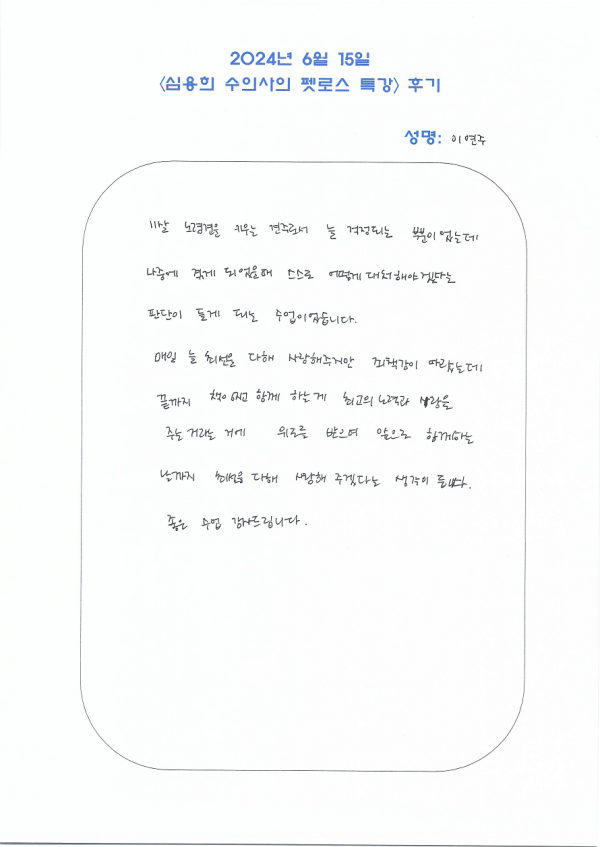 2024년 6월 15일
<심용희 수의사의 펫로스 특강> 후기
성명: 이연주
11살 노령견을 키우는 견주로서 늘 걱정되는 부분이 있는데
나중에 겪게 되었을때 스스로 어떻게 대처해야겠다는
판단이 들게 되는 수업이었습니다.
매일 늘 최선을 다해 사랑해주지만 죄책감이 따랐는데
끝까지 책임지고 함께 하는게 최고의 노력과 사랑을
주는거라는 거에 위로를 받으며 앞으로 함께하는
날까지 최선을 다해 사랑해 주겠다는 생각이
좋은 수업 감사드립니다.